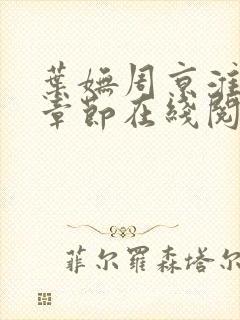 葉嫵周京淮
章節在綫閱
菲尔羅森塔尔